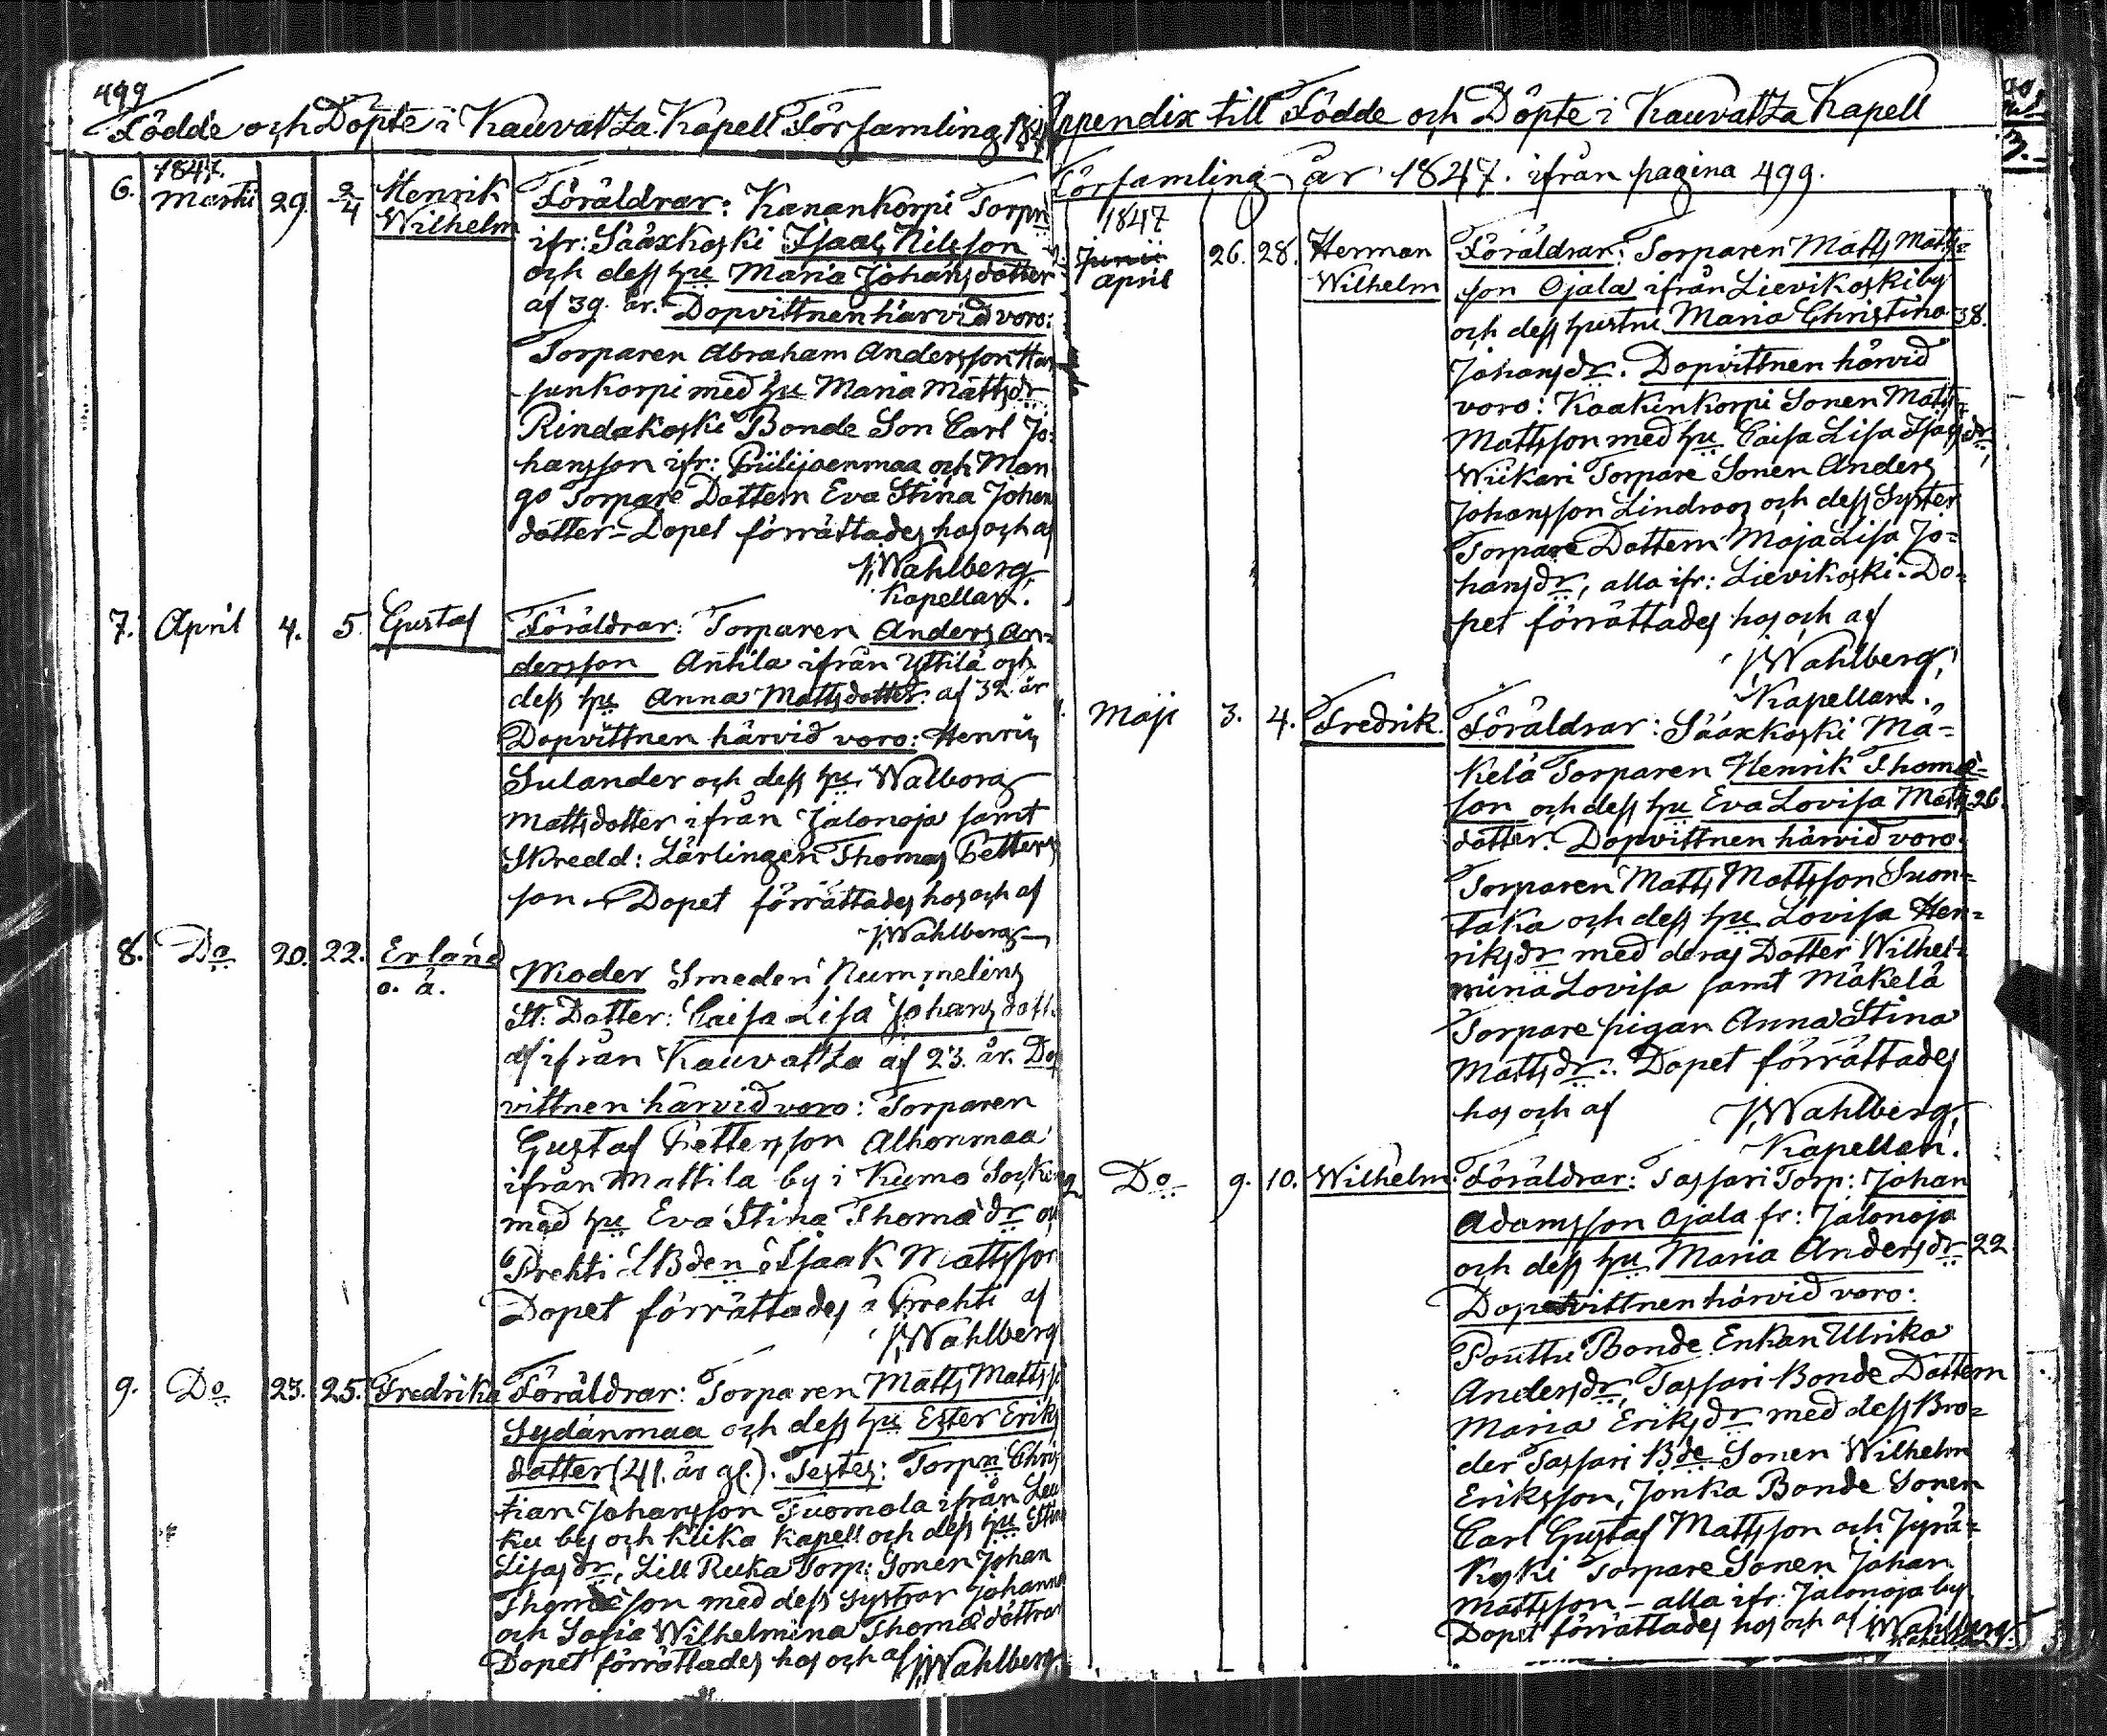 499
Födde och Döpte i Kauvatza Kapell Församling 184
1847.
6. Martii 29. 2/4 Henrik Wilhelm
Föräldrar: Kanankorpi Torpn
ifr: Sääxkoski Isaac Nilsson
och dess hu Maria Johansdotter
af 39. år. Dopvittnen härvid voro:
Torparen Abraham Andersson
sunkorpi med hu Maria Mattsdr
Rindakoski Bonde Son Carl Jo-
hansson ifr: och Man
go Torpare Dottern Eva Stina Johan
dotter - Dopet förrättades hos och af
J. Wahlberg,
Kapellan.
7. April 4. 5. Gustaf
Föräldrar: Torparen Anders An-
dersson Antila ifrån Yttilä och
dess hu Anna Mattsdotter. af 32 år
Dopvittnen härvid voro: Henric
Sulander och dess hu Walborg
Mattsdotter ifrån Jalonoja samt
Skredd: Lärlingen Thomas Petters
son - Dopet förrättades hos och af
J. Wahlberg
8. Do 20. 22. Erland
o. ä.
Moder Smeden Nummelins
St: Dotter: Caisa Lisa Johansdott
af ifrån Kauvatza af 23. år. Dop
vittnen härvid voro: Torparen
Gustaf Pettersson Alhonmaa
ifrån Mattila by i Kumo Socken
med hu Eva Stina Thomædr
Prehti Bden Isaak Mattsson
Dopet förrättades å Prehti af
J. Wahlberg
9. Do 23. 25. Fredrika
Föräldrar: Torparen Matts Matts
Sydänmaa och dess hu Ester Eriks
dotter (41. år gl.). Testes: Torpn Chris
tian Johansson Tuomola ifrån
ku by och Kiika Kapell och dess hu Stina
Lisasdr, Lill Ruka Torp: Sonen Johan
Thomæson med dess Systrar Johanna
och Sofia Wilhelmina Thomædöttrar
Dopet förrättades hos och af J. Wahlberg.
Appendix till Födde och Döpte i Kauvatza Kapell
Församling år 1847. ifrån pagina 499.
1847
Junii
April 26. 28. Herman
Wilhelm
Föräldrar: Torparen Matts Matts-
son Ojala ifrån Lievikoski by
och dess hustru Maria Christina 38.
Johansdr. Dopvittnen härvid
voro: Kaakinkorpi Sonen Matts
Mattsson med hu Caisa Lisa Isacsdr,
Wiikari Torpare Sonen Anders
Johansson Lindroos och dess Syster
Torpare Dottern Maja Lisa Jo-
hansdr, alla ifr: Lievikoski. Do-
pet förrättades hos och af
J. Wahlberg,
Kapellan.
Maji 3. 4. Fredrik.
Föräldrar: Sääxkoski Mä-
kelä Torparen Henrik Thomæ-
son och dess hu Eva Lovisa Matts 26.
dotter. Dopvittnen härvid voro:
Torparen Matts Mattsson Suon-
taka och dess hu Lovisa Hen-
riksdr med deras Dotter Wilhel-
mina Lovisa samt Mäkelä
Torpare pigan Anna Stina
Mattsdr. Dopet förrättades
hos och af J. Wahlberg,
Kapellan.
Do 9. 10. Wilhelm.
Föräldrar: Tassari Torp: Johan
Adamsson Ojala fr: Jalonoja
och dess hu Maria Andersdr 22
Dopetvittnen härvid voro:
Pouttu Bonde Enkan Ulrika
Andersdr, Tassari Bonde Dottern
Maria Eriksdr med dess Bro-
der Tassari Bde Sonen Wilhelm
Eriksson, Jonka Bonde Sonen
Carl Gustaf Mattsson och Jyrä-
Torpare Sonen Johan
Mattsson - alla ifr: Jalonoja by.
Dopet förrättades hos och af J. Wahlberg.
Kapellan